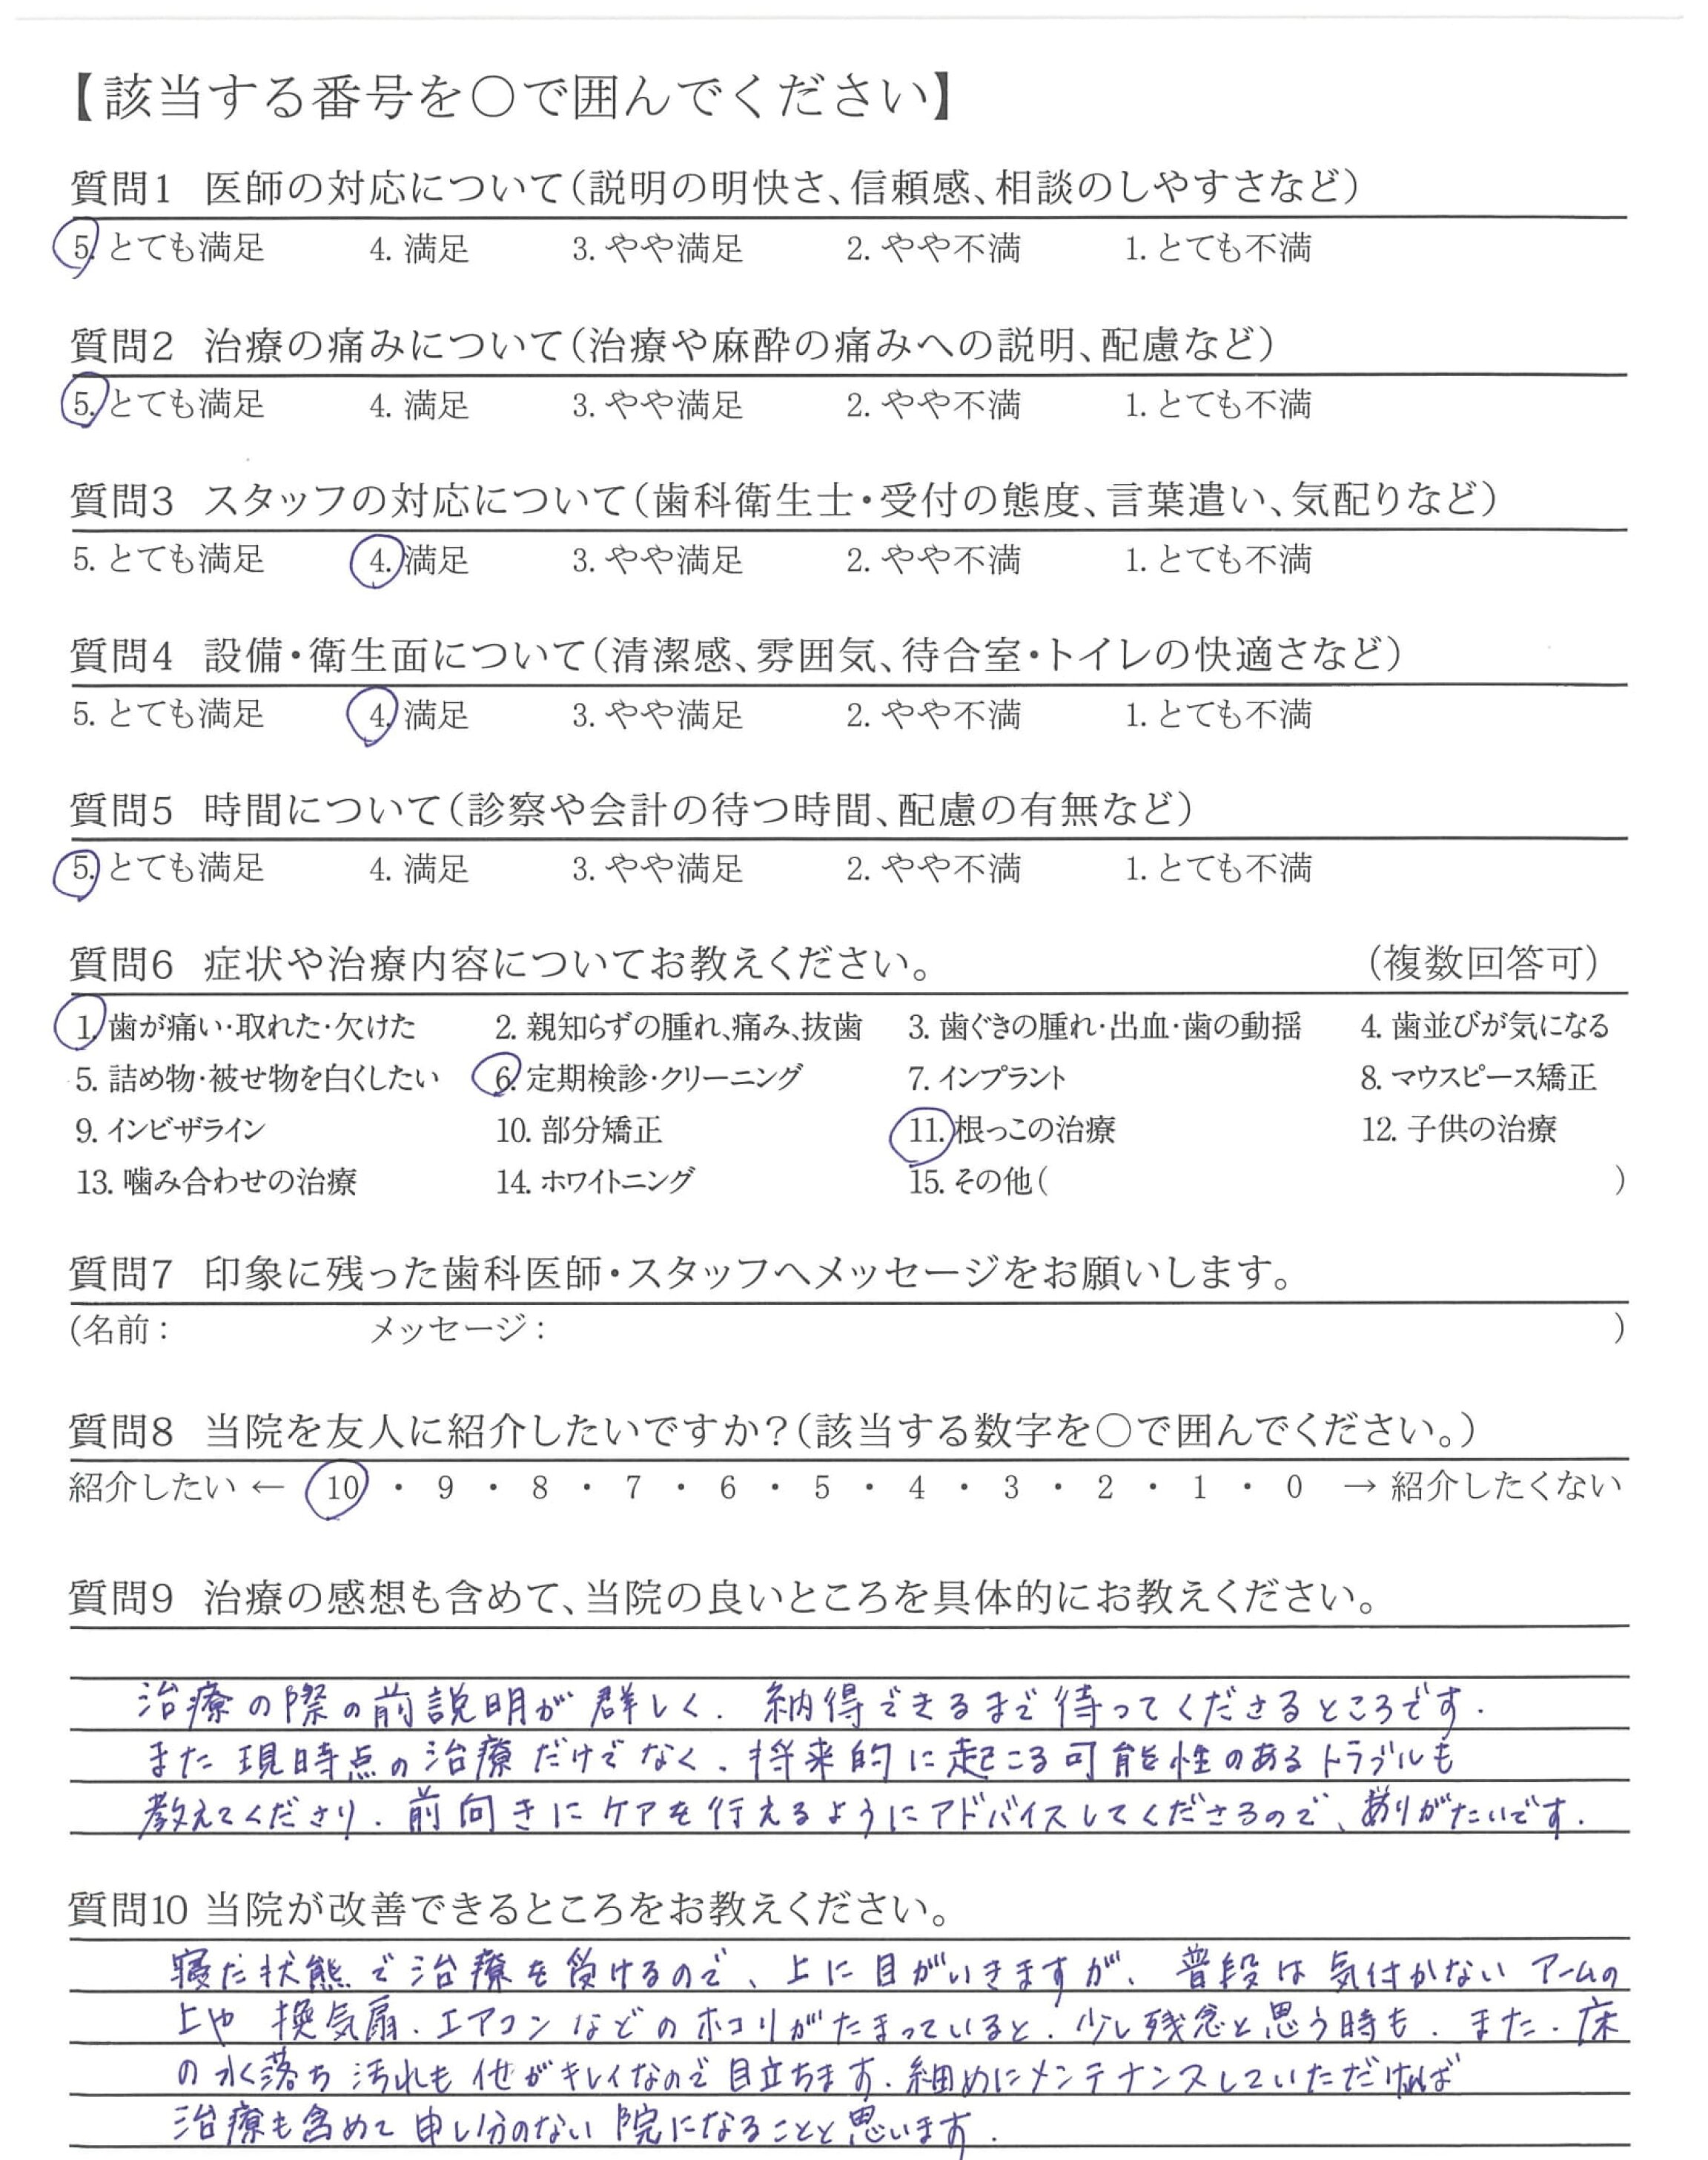 【該当する番号を○で囲んでください】
質問1 医師の対応について(説明の明快さ、信頼感、相談のしやすさなど)
5. とても満足 4. 満足 3. やや満足 2. やや不満 1. とても不満
質問2 治療の痛みについて(治療や麻酔の痛みへの説明、配慮など)
5. とても満足 4. 満足 3. やや満足 2. やや不満 1. とても不満
質問3 スタッフの対応について(歯科衛生士・受付の態度、言葉遣い、気配りなど)
5. とても満足 4. 満足 3. やや満足 2. やや不満 1. とても不満
質問4 設備・衛生面について(清潔感、雰囲気、待合室・トイレの快適さなど)
5. とても満足 4. 満足 3. やや満足 2. やや不満 1. とても不満
質問5 時間について(診察や会計の待つ時間、配慮の有無など)
5. とても満足 4. 満足 3. やや満足 2. やや不満 1. とても不満
質問6 症状や治療内容についてお教えください。 (複数回答可)
1. 歯が痛い・取れた・欠けた 2. 親知らずの腫れ、痛み、抜歯 3. 歯ぐきの腫れ・出血・歯の動揺 4. 歯並びが気になる
5. 詰め物・被せ物を白くしたい 6. 定期検診・クリーニング 7. インプラント 8. マウスピース矯正
9. インビザライン 10. 部分矯正 11. 根っこの治療 12. 子供の治療
13. 噛み合わせの治療 14. ホワイトニング 15. その他( )
質問7 印象に残った歯科医師・スタッフへメッセージをお願いします。
(名前: メッセージ: )
質問8 当院を友人に紹介したいですか?(該当する数字を○で囲んでください。)
紹介したい ← 10 ・ 9 ・ 8 ・ 7 ・ 6 ・ 5 ・ 4 ・ 3 ・ 2 ・ 1 ・ 0 → 紹介したくない
質問9 治療の感想も含めて、当院の良いところを具体的にお教えください。
治療の際の前説明が群しく、納得できるまで待ってくださるところです.
また現時点の治療だけでなく、将来的に起こる可能性のあるトラブルも
教えてくださり、前向きにケアを行えるようにアドバイスしてくださるので、ありがたいです.
質問10 当院が改善できるところをお教えください。
寝た状態で治療を受けるので、上に目がいきますが、普段は気付かないアームの
上や 換気扇、エアコンなどのホコリがたまっていると、少し残念と思う時も. また、床
の水落ち汚れも他がキレイなので目立ちます. 細めにメンテナンスしていただければ
治療も含めて申し分のない院になることと思います.